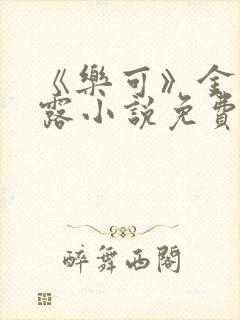 《樂可》金
露小說免費
醉舞西閣